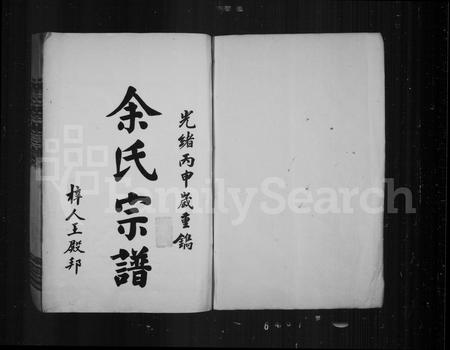 光緒丙申歲重鐫
余氏宗譜
梓人王殿邦
FamilySearch